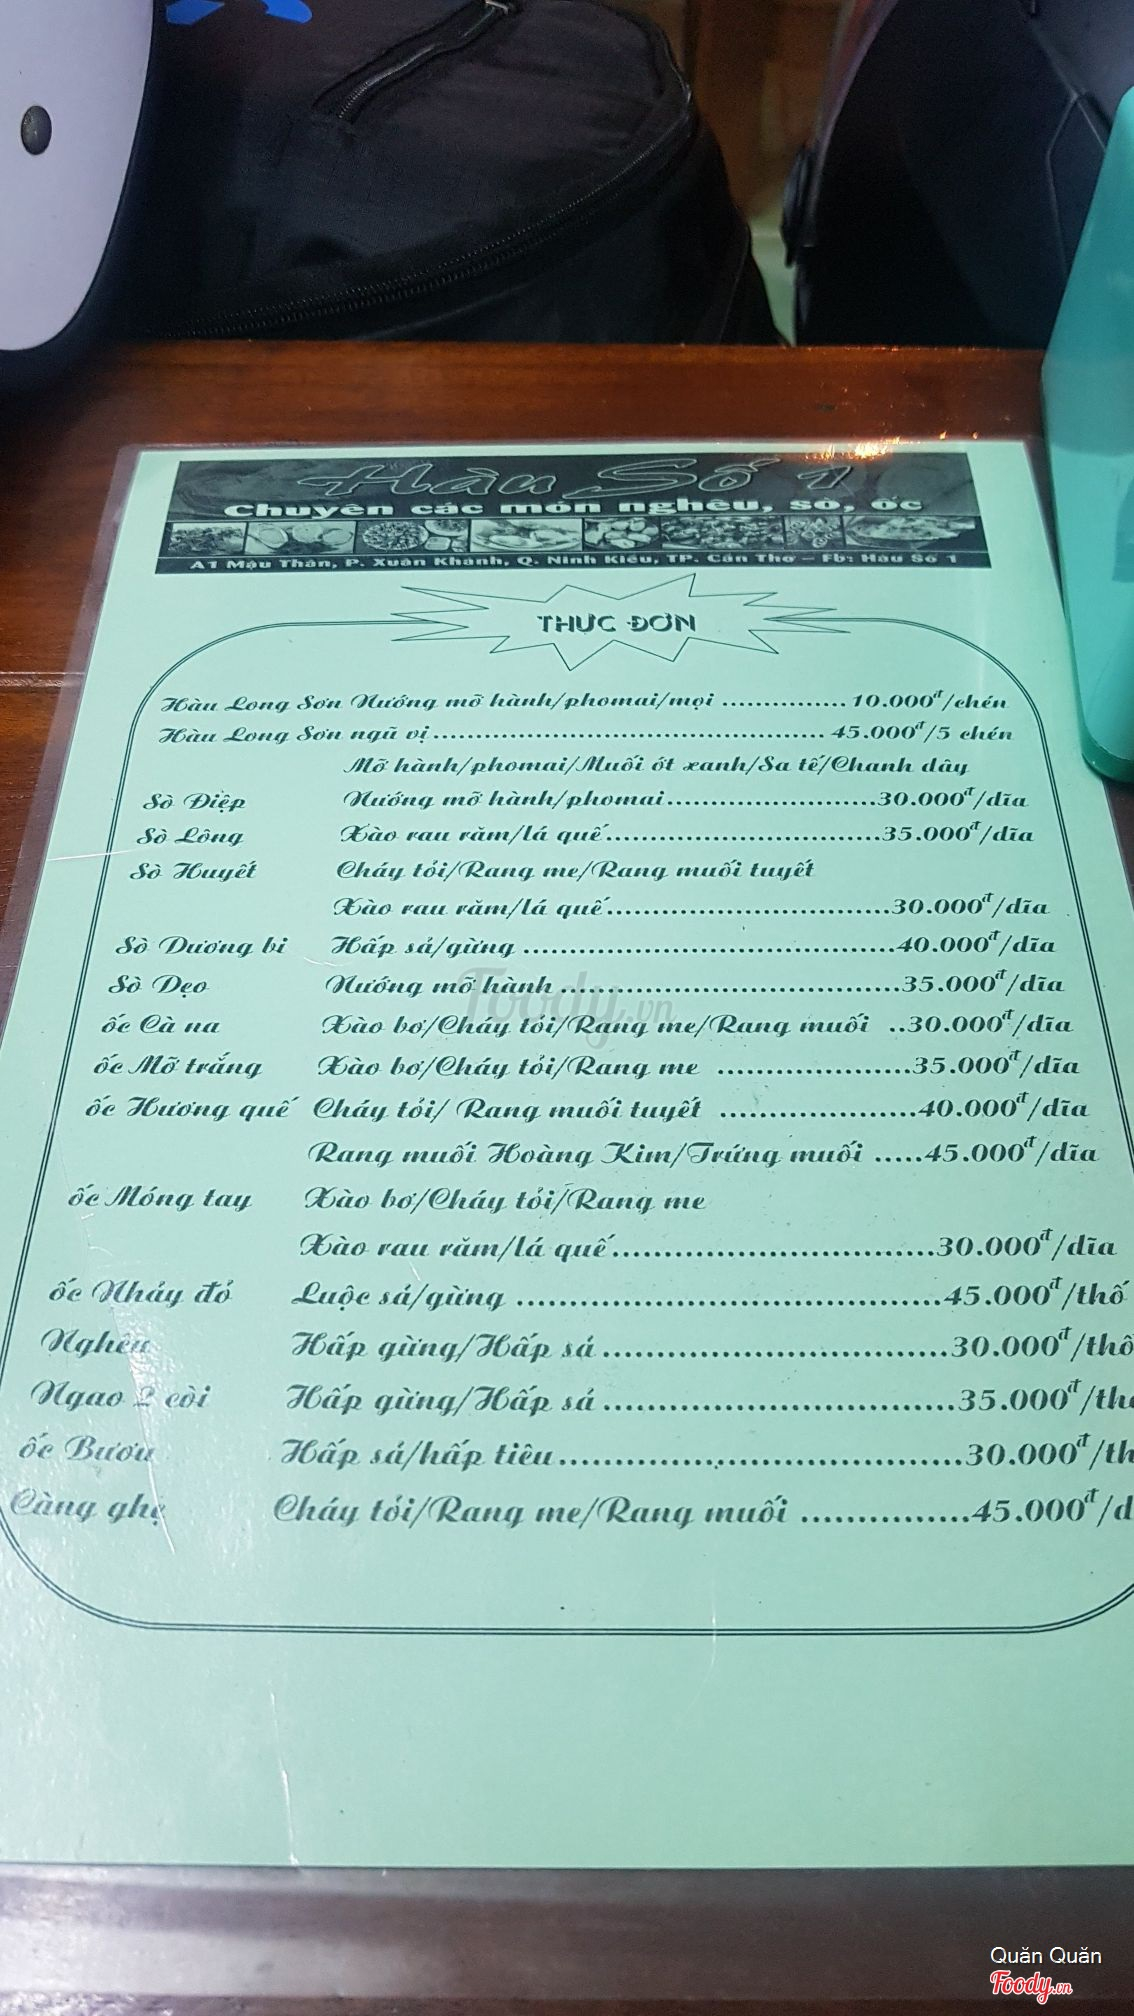 Hàu Số 1
Chuyên các món nghêu, sò, ốc
A1 Mậu Thân, P. Xuân Khánh, Q. Ninh Kiều, TP. Cần Thơ - Fb: Hàu Số 1
THỰC ĐƠN
Hàu Long Sơn Nướng mỡ hành/phomai/mọi ............... 10.000đ/chén
Hàu Long Sơn ngũ vị.................................................. 45.000đ/5 chén
Mỡ hành/phomai/Muối ớt xanh/Sa tế/Chanh dây
Sò Điệp Nướng mỡ hành/phomai...........................30.000đ/dĩa
Sò Lông Xào rau răm/lá quế...................................35.000đ/dĩa
Sò Huyết Cháy tỏi/Rang me/Rang muối tuyết
Xào rau răm/lá quế....................................30.000đ/dĩa
Sò Dương bi Hấp sả/gừng ...............................................40.000đ/dĩa
Sò Dẹo Nướng mỡ hành...........................................35.000đ/dĩa
ốc Cà na Xào bơ/Cháy tỏi/Rang me/Rang muối ..30.000đ/dĩa
ốc Mỡ trắng Xào bơ/Cháy tỏi/Rang me ........................35.000đ/dĩa
ốc Hương quế Cháy tỏi/ Rang muối tuyết .......................40.000đ/dĩa
Rang muối Hoàng Kim/Trứng muối .....45.000đ/dĩa
ốc Móng tay Xào bơ/Cháy tỏi/Rang me
Xào rau răm/lá quế...................................30.000đ/dĩa
ốc Nhảy đỏ Luộc sả/gừng .............................................45.000đ/thố
Nghêu Hấp gừng/Hấp sả....................................30.000đ/thố
Ngao 2 còi Hấp gừng/Hấp sả....................................35.000đ/th
ốc Bươu Hấp sả/hấp tiêu.........................................30.000đ/th
Càng ghẹ Cháy tỏi/Rang me/Rang muối ................45.000đ/d
Foody.vn
Quăn Quăn
Foody.vn